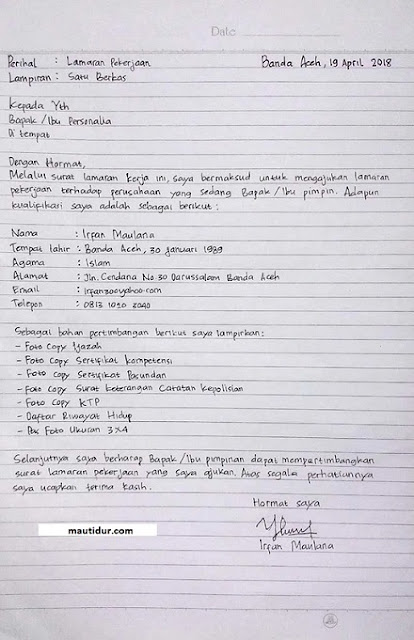 Date
Perihal : Lamaran Pekerjaan Banda Aceh, 19 April 2018
Lampiran : Satu Berkas
Kepada Yth
Bapak / Ibu Personalia
Di tempat
Dengan Hormat,
Melalui surat lamaran kerja ini, saya bermaksud untuk mengajukan lamaran
pekerjaan terhadap perusahaan yang sedang Bapak / Ibu pimpin. Adapun
kualifikasi saya adalah sebagai berikut :
Nama : Irfan Maulana
Tempat lahir : Banda Aceh, 30 Januari 1989
Agama : Islam
Alamat : Jln. Cendana No 30 Darussalam Banda Aceh
Email :
Telepon : 0813 1020 2040
Sebagai bahan pertimbangan berikut saya lampirkan :
- Foto Copy Ijazah
- Foto Copy Sertifikat Kompetensi
- Foto Copy Sertifikat
- Foto Copy Surat Keterangan Catatan Kepolisian
- Foto Copy KTP
- Daftar Riwayat Hidup
- Pas Foto Ukuran 3x4
Selanjutnya saya berharap Bapak / Ibu pimpinan dapat mempertimbangkan
surat lamaran pekerjaan yang saya ajukan. Atas segala perhatiannya
saya ucapkan terima kasih.
Hormat saya
mautidur.com
Irfan Maulana